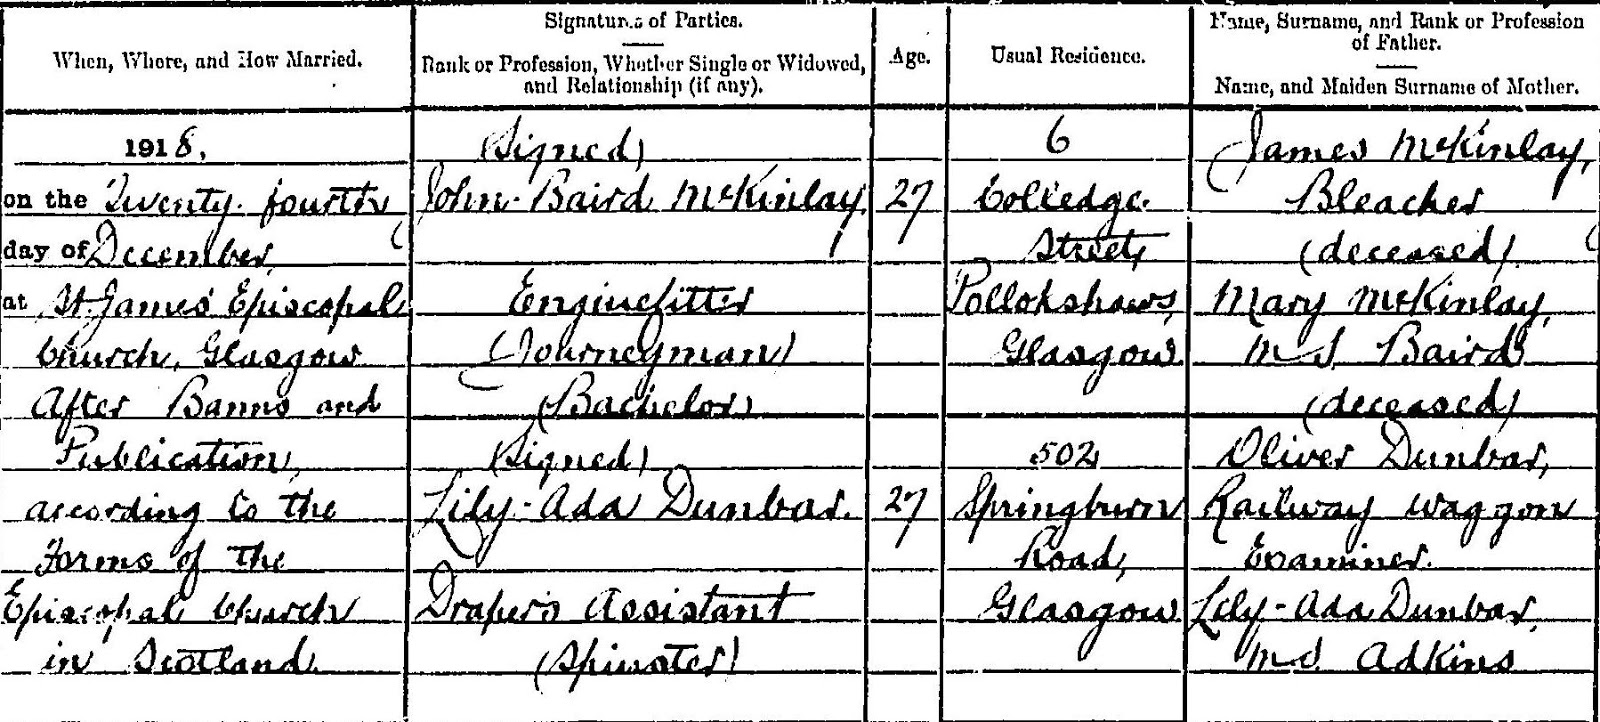 When, Where, and How Married.
Signature of Parties.
Rank or Profession, Whether Single or Widowed,
and Relationship (if any).
Age.
Usual Residence.
Name, Surname, and Rank or Profession
of Father.
Name, and Maiden Surname of Mother.
1918,
on the Twenty-fourth
day of December
at St. James' Episcopal
Church, Glasgow
After Banns and
Publication,
according to the
Forms of the
Episcopal Church
in Scotland.
(Signed)
John Baird McKinlay
Enginefitter
(Journeyman)
(Bachelor)
27
6
Colledge
Street,
Pollokshaws,
Glasgow
James McKinlay,
Bleacher
(deceased)
Mary McKinlay,
M.S. Baird
(deceased)
(Signed)
Lily-Ada Dunbar.
Draper's Assistant
(Spinster)
27
502
Springburn
Road,
Glasgow
Oliver Dunbar,
Railway Waggon
Examiner.
Lily-Ada Dunbar,
M.S. Adkins